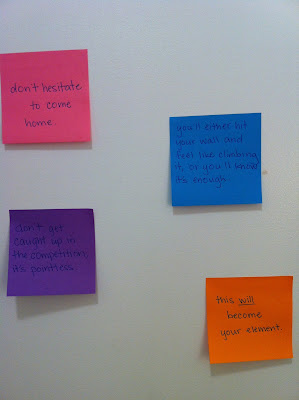 don't hesitate
to come
home.
you'll either hit
your wall and
feel like climbing
it, or you'll know
it's enough.
don't get
caught up in
the competition;
it's pointless.
this will
become
your element.